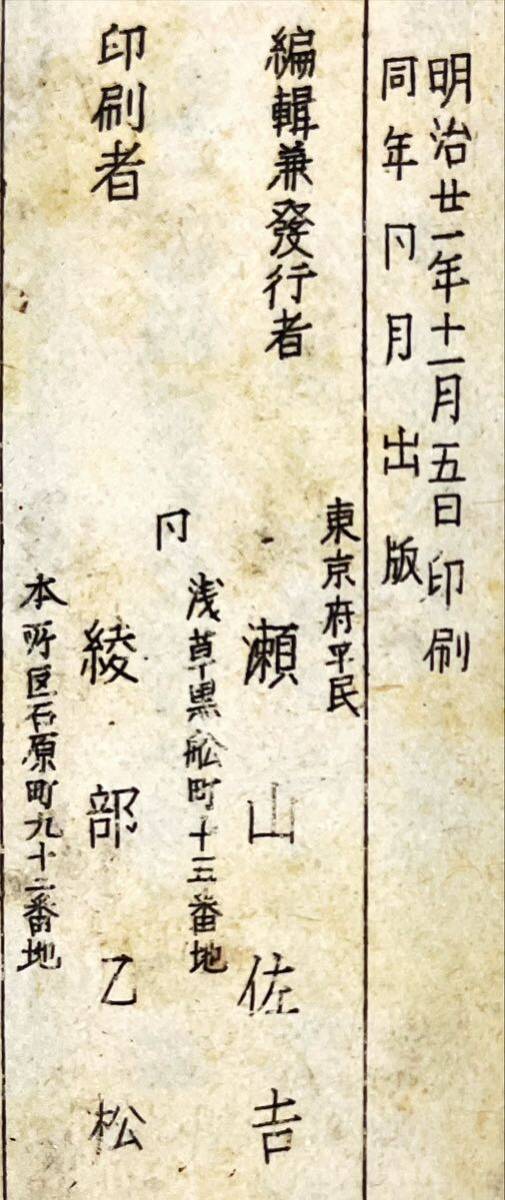 明治廿一年十一月五日印刷
同年冃月出版
東京府平民
編輯兼發行者 瀬山佐吉
浅草黒舩町十五番地
冃
印刷者 綾部乙松
本所区石原町九十二番地